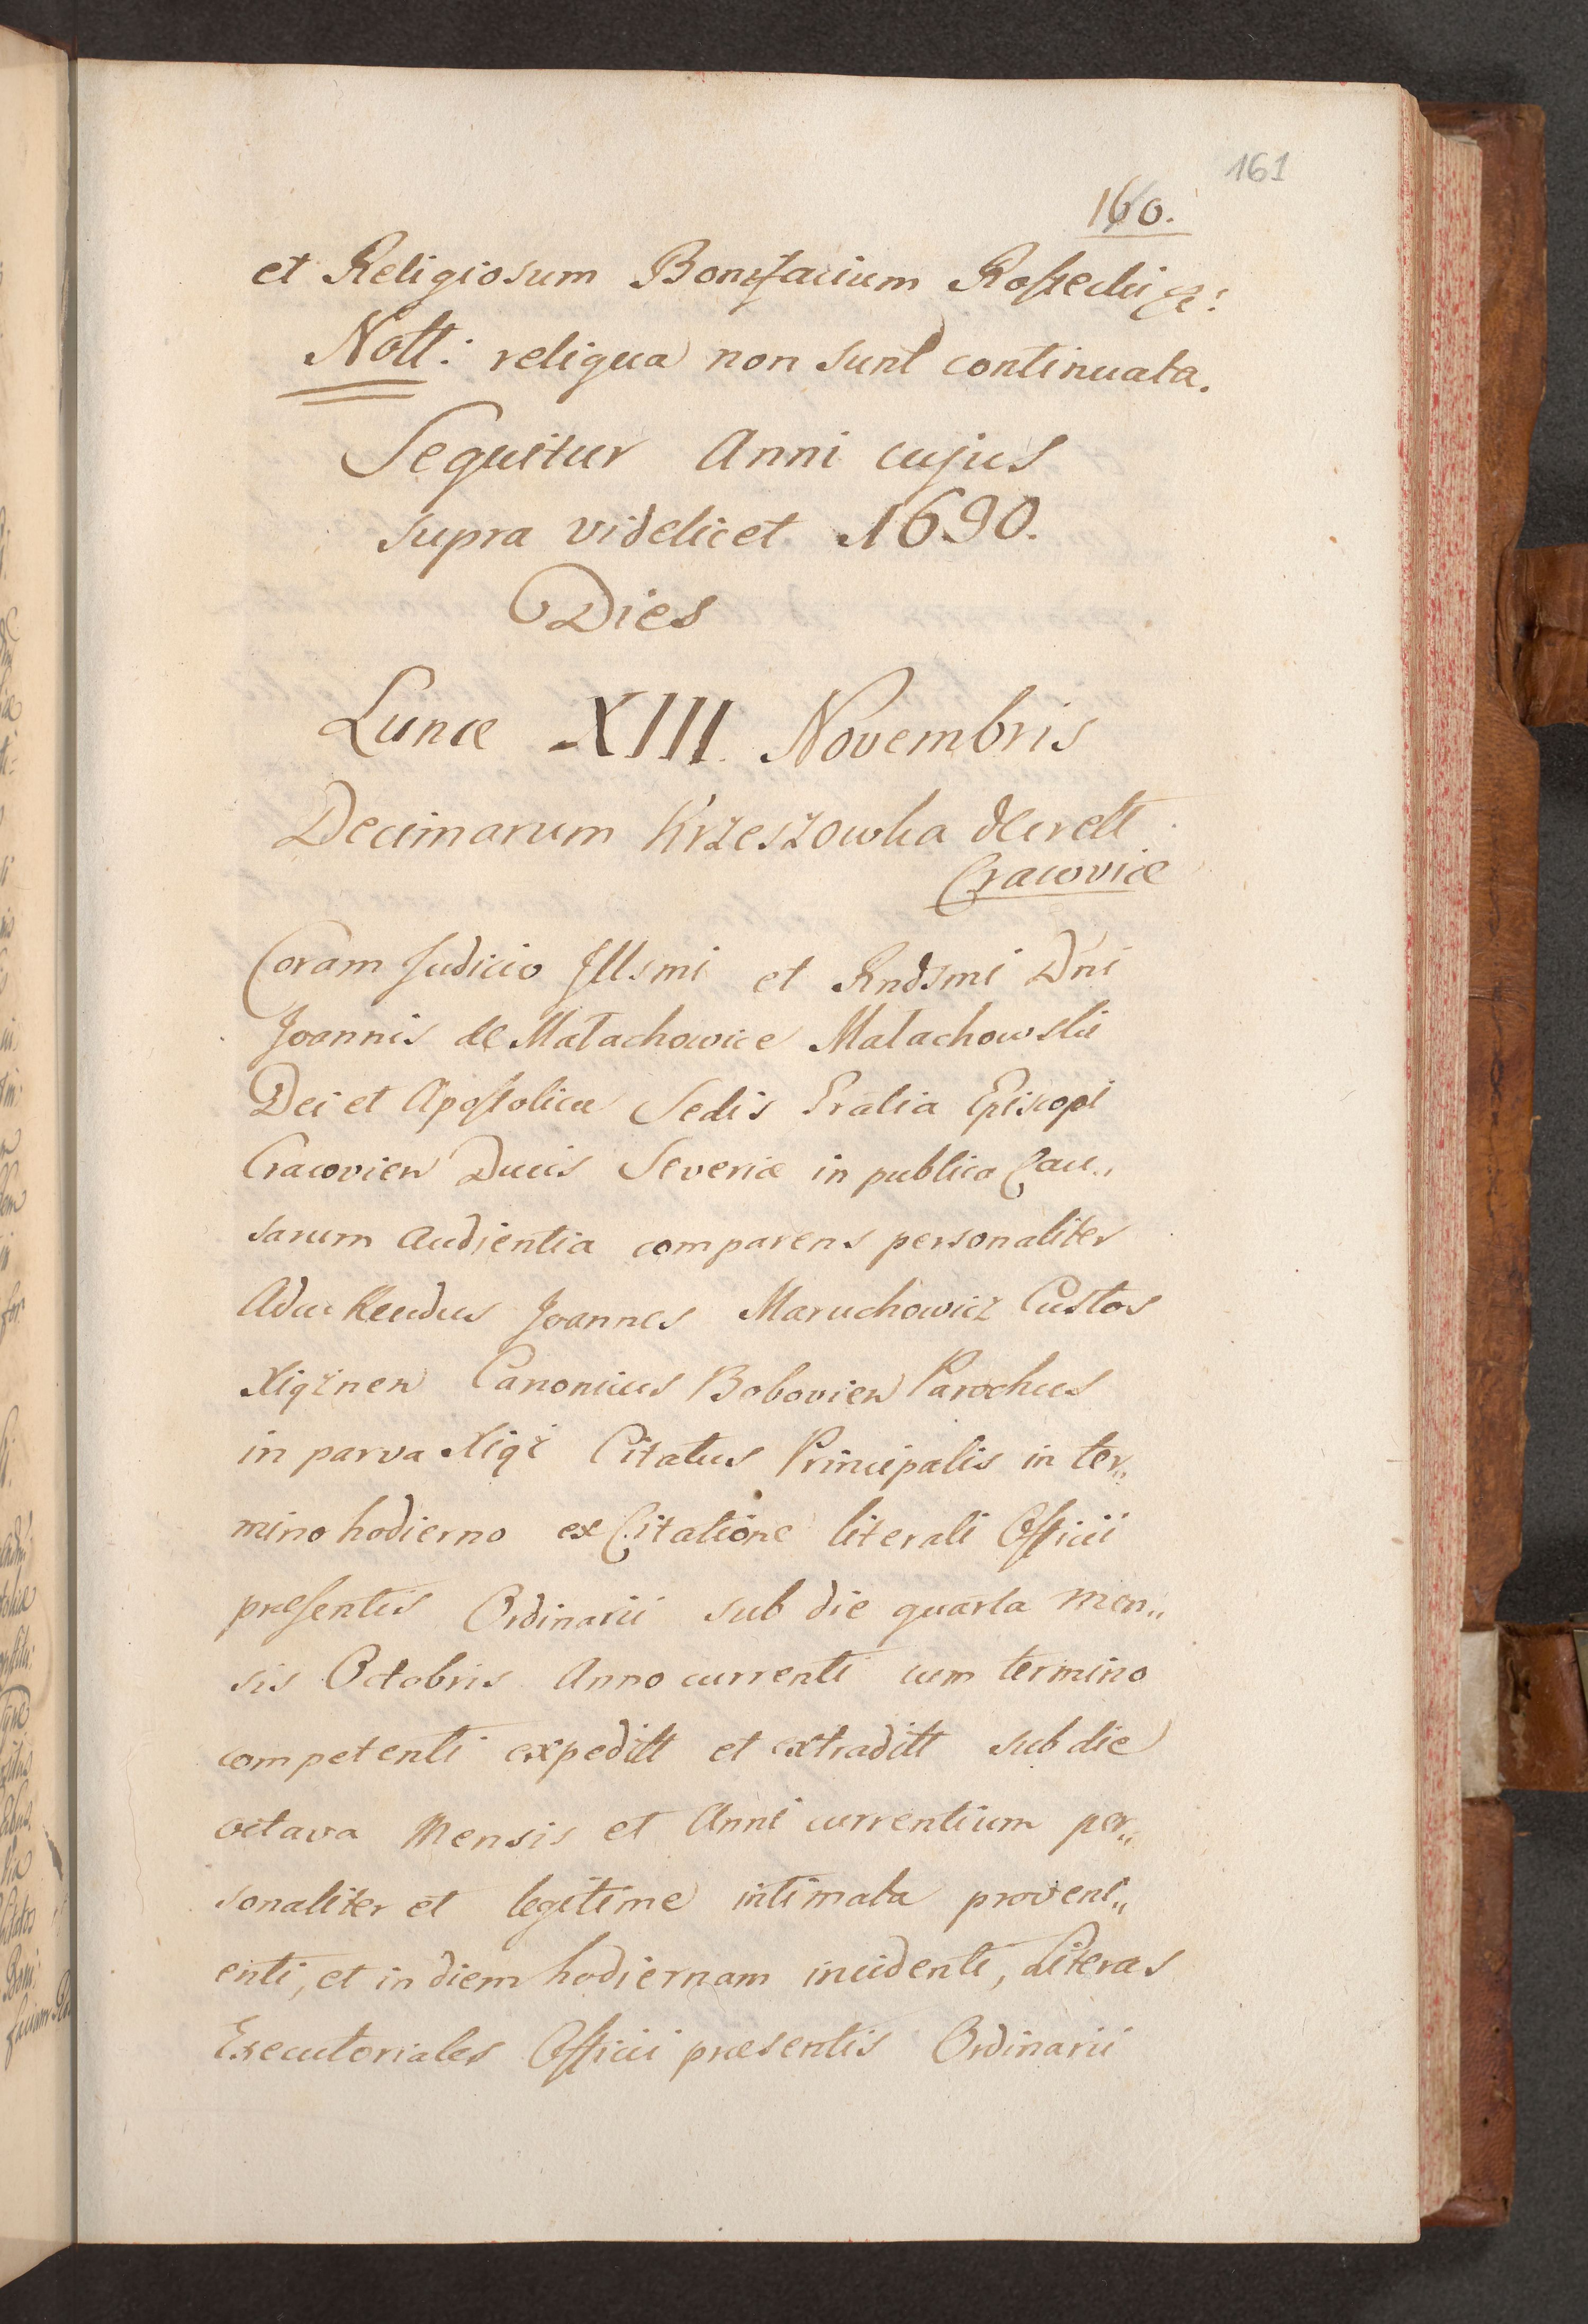 161
160.
et Religiosum Bonifacium Rostecki &c:
Nott: reliqua non sunt continuata.
Sequitur Anni cujus
supra videlicet 1690.
Dies
Lunæ XIII. Novembris
Decimarum Krzeszowka decrett
Cracoviæ
Coram Judicio Illsmi et Rndsmi Dni
Joannis de Małachowice Małachowski
Dei et Apostolicæ Sedis Gratia Episcopi
Cracovien Ducis Severiæ in publica Cau„
sarum Audientia comparens personaliter
Joannes Maruchowicz Custos
Xiążnen Canonicus Bobovien Parochus
in parva Xiąż Citatus Principalis in ter„
mino hodierno ex Citatione literali Officii
præsentis Ordinarii sub die quarta men„
sis Octobris Anno currenti cum termino
competenti expeditt et extraditt sub die
octava Mensis et Anni currentium per„
sonaliter et legitime intimata proveni„
enti, et in diem hodiernam incidenti, Literas
Executoriales Officii præsentis Ordinarii